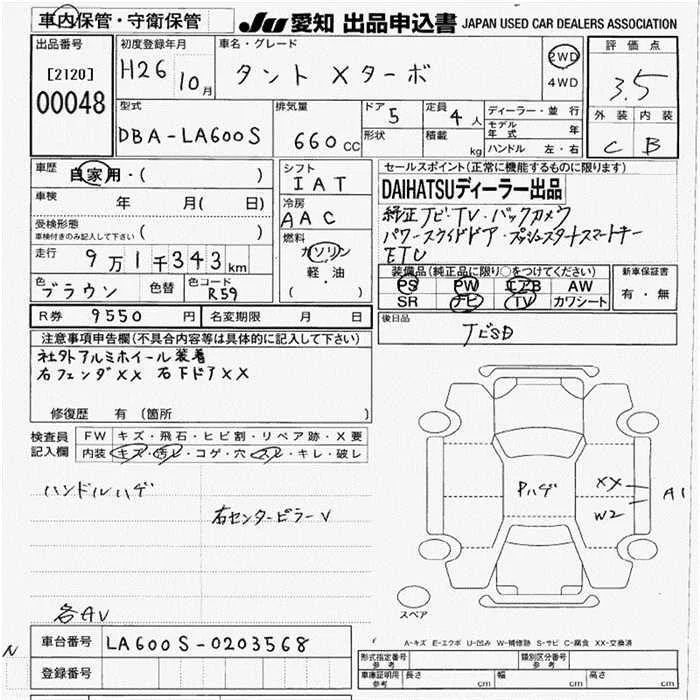 車内保管・守衛保管
JU 愛知 出品申込書 JAPAN USED CAR DEALERS ASSOCIATION
出品番号
[2120]
00048
初度登録年月
H26 10月
車名・グレード
タント Xターボ
2WD
4WD
評価点
3.5
外装 内装
C B
型式
DBA-LA600S
排気量
660 CC
ドア 5
形状
定員 4 人
積載 kg
ディーラー・並行
モデル年式 年
ハンドル 左・右
車歴 自家用・( )
車検 年 月( 日)
受検形態
車検付きのみ記入して下さい ( )
走行 9万1千343km
色 ブラウン 色替 色コード R59
シフト
IAT
冷房
AAC
燃料
ガソリン
軽・油
( )
セールスポイント(正常に機能するものに限ります)
DAIHATSUディーラー出品
純正ナビ・TV・バックカメラ
パワースライドドア・プッシュスタートスマートキー
ETC
装備品(純正品に限り○をつけてください)
PS PW エアB AW
SR ナビ TV カワシート
新車保証書
有・無
R券 9550 円 名変期限 月 日
後日品
ナビSD
注意事項申告欄(不具合内容等は具体的に記入して下さい)
社外アルミホイール装着
右フェンダXX 右下ドアXX
修復歴 有 (箇所 )
検査員記入欄
FW キズ・飛石・ヒビ割・リペア跡・X要
内装 キズ・汚レ・コゲ・穴・スレ・キレ・破レ
ハンドルハゲ
右センターピラーV
各AV
Pハゲ
XX
W2
A1
スペア
N
車台番号 LA600S-0203568
登録番号
A-キズ E-エクボ U-凹み W-補修跡 S-サビ C-腐食 XX-交換済
形式指定番号 参考
類別区分番号 参考
車庫証明用 参考
長さ cm 幅 cm 高さ cm